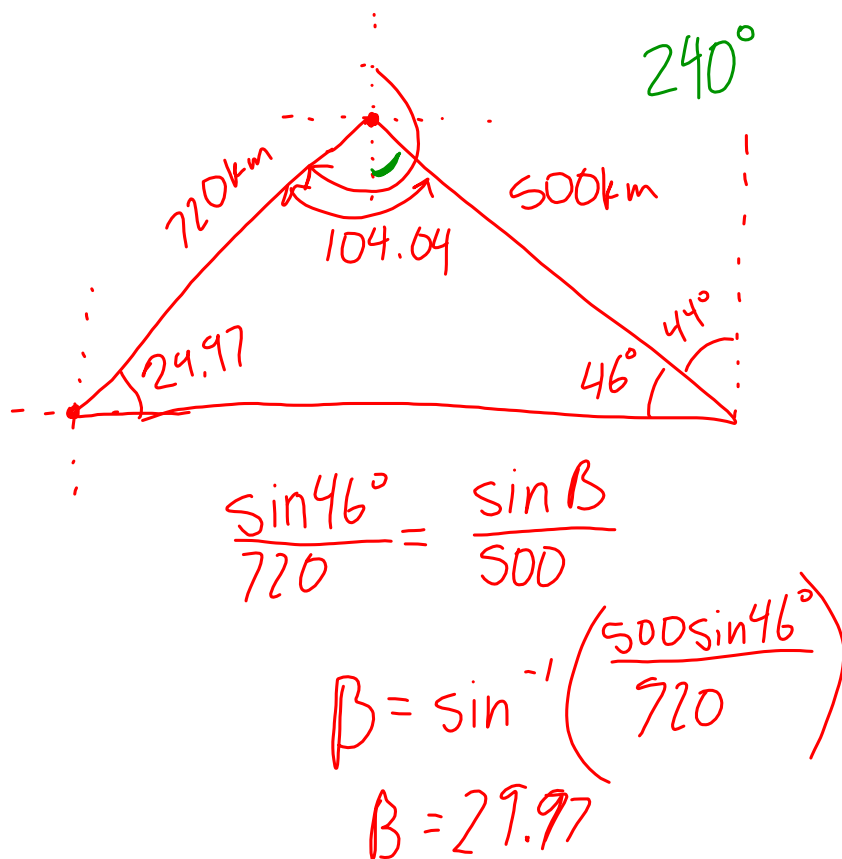 240°
720km
500km
104.04
44°
29.97
46°
sin46°/720 = sin B/500
β = sin⁻¹(500sin46°/720)
β = 29.97